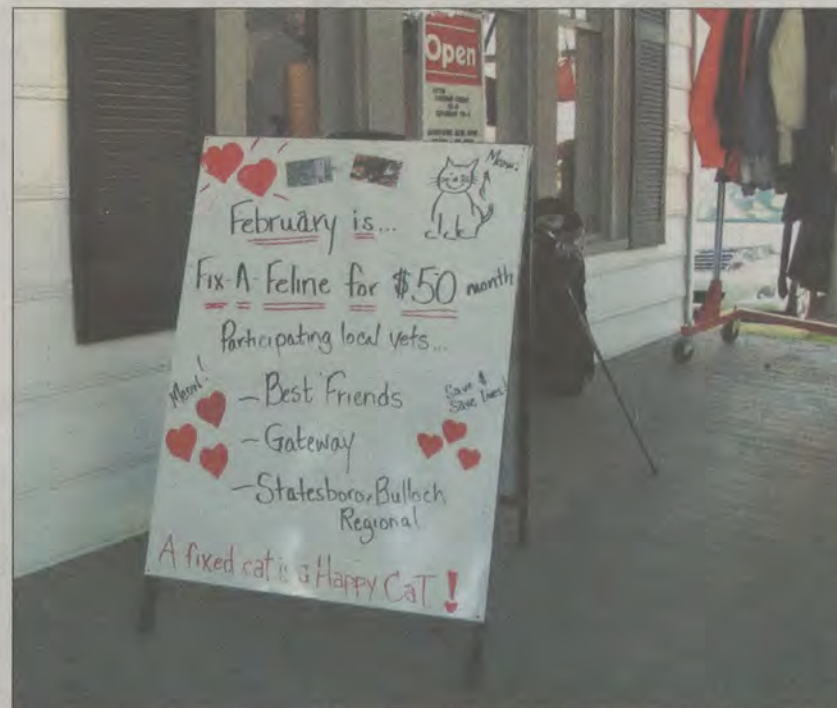 Open
Meow!
February is...
Fix-A-Feline for $50 month
Participating local vets...
Meow!
Save $
Save lives!
-Best Friends
-Gateway
-Statesboro-Bulloch
Regional
A fixed cat is a Happy CaT!